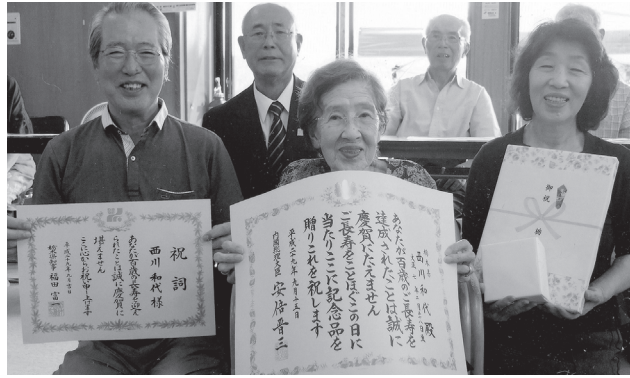 祝詞
西川 和代 様
あなたが百歳の長寿を迎え
られたことは誠に慶賀に
堪えません
ここに心からお祝い申し上げます
平成二十九年九月吉日
知事 福田 富
西川和代 殿
あなたが百歳のご長寿を
達成されたことは誠に
慶賀にたえません
ご長寿をことほぐこの日に
当たりここに記念品を
贈りこれを祝します
平成二十九年九月十五日
内閣総理大臣 安倍晋三
御祝